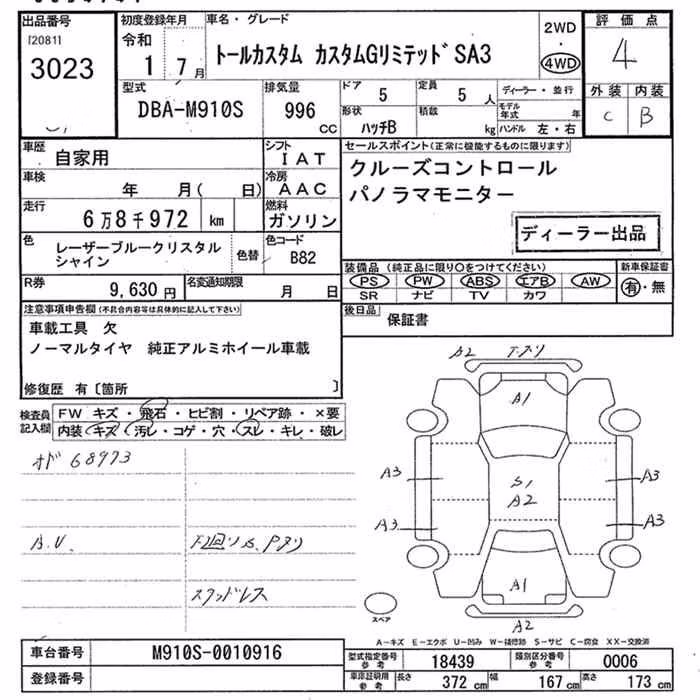 出品番号 初度登録年月 車名・グレード 評価点
120811 令和 2WD
3023 1 7月 トールカスタム カスタムGリミテッド SA3 ・ 4
4WD
型式 排気量 ドア 定員 ディーラー・並行 外装 内装
DBA-M910S 996 cc 5 5人 モデル年式 年 C B
形状 積載
ハッチB kg ハンドル 左・右
車歴 シフト セールスポイント(正常に機能するものに限ります)
自家用 IAT クルーズコントロール
車検 冷房 パノラマモニター
年 月( 日) AAC
走行 燃料
6万8千972 km ガソリン ディーラー出品
色 色替 色コード
レーザーブルークリスタル B82
シャイン
装備品(純正品に限り○をつけてください) 新車保証書
PS PW ABS エアB AW 有・無
SR ナビ TV カワ
R券 名変期限
9,630円 月 日
注意事項申告欄(不具合内容等は具体的に記入して下さい) 後日品 保証書
車載工具 欠
ノーマルタイヤ 純正アルミホイール車載
修復歴 有〔箇所 〕
検査員記入欄 FW キズ・飛石・ヒビ割・リペア跡・×要
内装 キズ・汚レ・コゲ・穴・スレ・キレ・破レ
オド 68973
B.V.
スタッドレス
A2
A1
A3 S1 A3
A2
A3 A3
A1
A2
スペア
A-キズ E-エクボ U-凹み W-補修跡 S-サビ C-腐食 XX-交換済
車台番号 M910S-0010916 型式指定番号参考 18439 類別区分番号参考 0006
登録番号 車庫証明用参考 長さ 372cm 幅 167cm 高さ 173cm